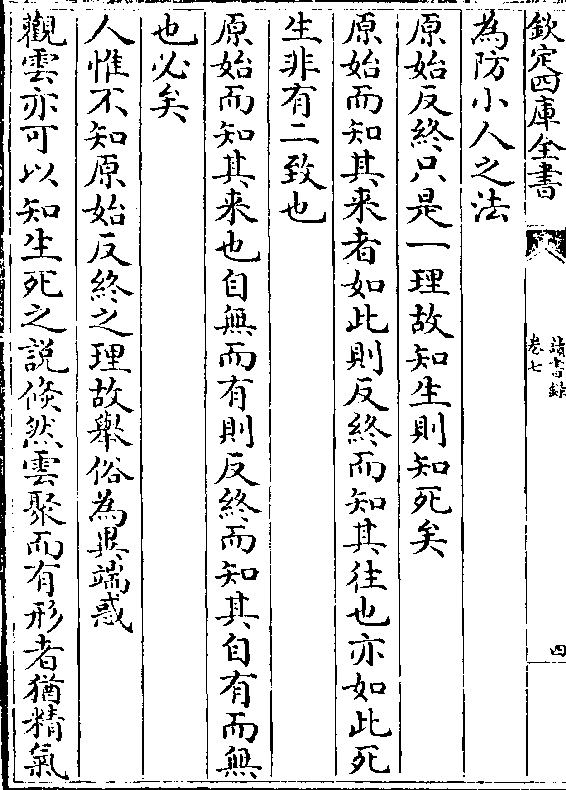 欽定四庫全書
讀書錄
卷七
四
為防小人之法
原始反終只是一理故知生則知死矣
原始而知其来者如此則反終而知其往也亦如此死
生非有二致也
原始而知其来也自無而有則反終而知其自有而無
也必矣
人惟不知原始反終之理故舉俗為異端惑
觀雲亦可以知生死之説倐然雲聚而有形者猶精氣